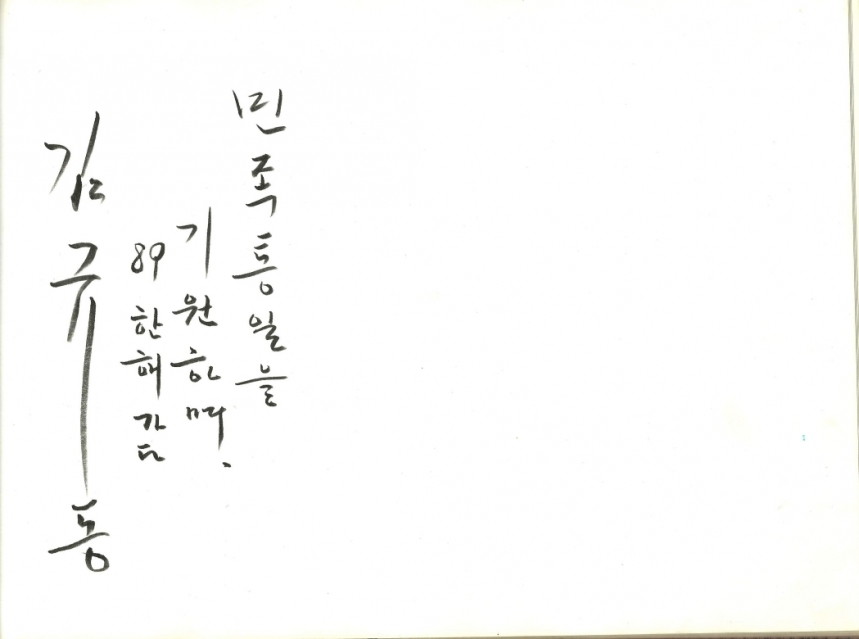 민족통일을
기원하며.
89 한해 감
김규동